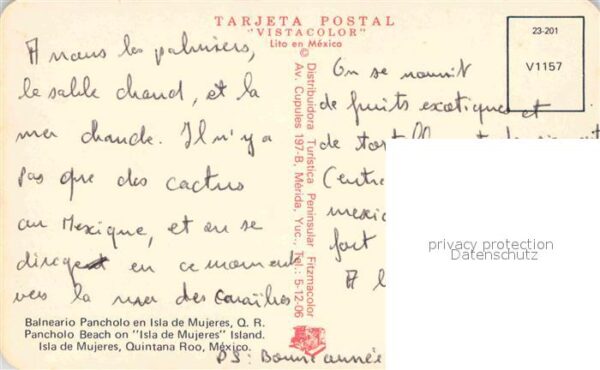 TARJETA POSTAL
"VISTACOLOR"
Lito en México
23-201
V1157
A nous les palmiers,
le sable chaud, et la
mer chaude. Il n'y a
pas que des cactus
au Mexique, et on se
dirige en ce moment
vers la mer des Caraïbes
© Distribuidora Turística Peninsular Fitzmacolor
Av. Cupules 197-B, Mérida, Yuc., Tel.: 5-12-06
On se nourrit
de fruits exotiques et
de
mexic
fort
A l
privacy protection
Datenschutz
Balneario Pancholo en Isla de Mujeres, Q. R.
Pancholo Beach on "Isla de Mujeres" Island.
Isla de Mujeres, Quintana Roo, México.
PS: Bonne année